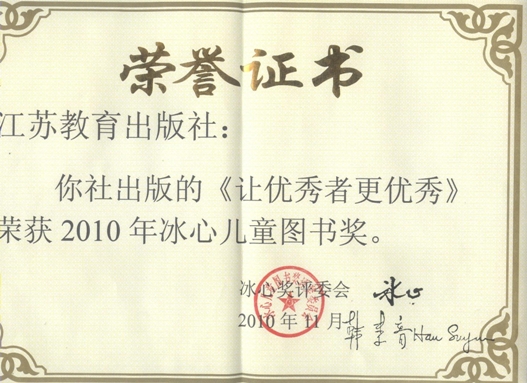 荣誉证书
江苏教育出版社：
你社出版的《让优秀者更优秀》
荣获 2010 年冰心儿童图书奖。
冰心奖评委会 冰心
2010 年 11 月 韩素音 Han Suyin